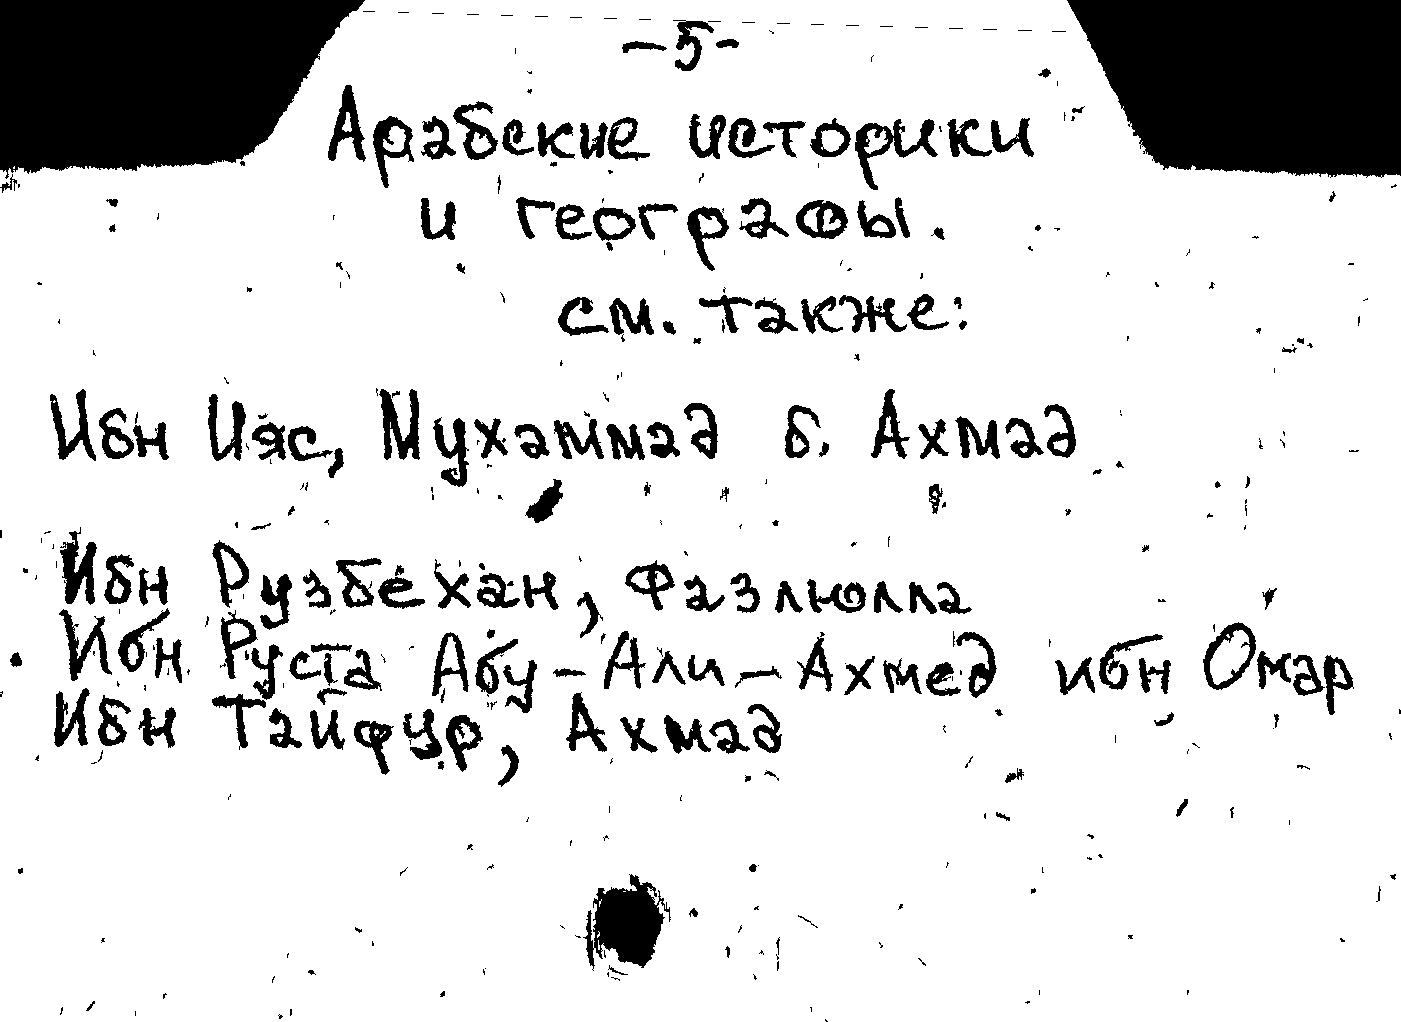 -5-
Арабские историки
и географы.
см. также:
Ибн Ияс, Мухаммад б. Ахмад
Ибн Рузбехан, Фазлюлла
Ибн Руста Абу-Али-Ахмед ибн Омар
Ибн Тайфур, Ахмад